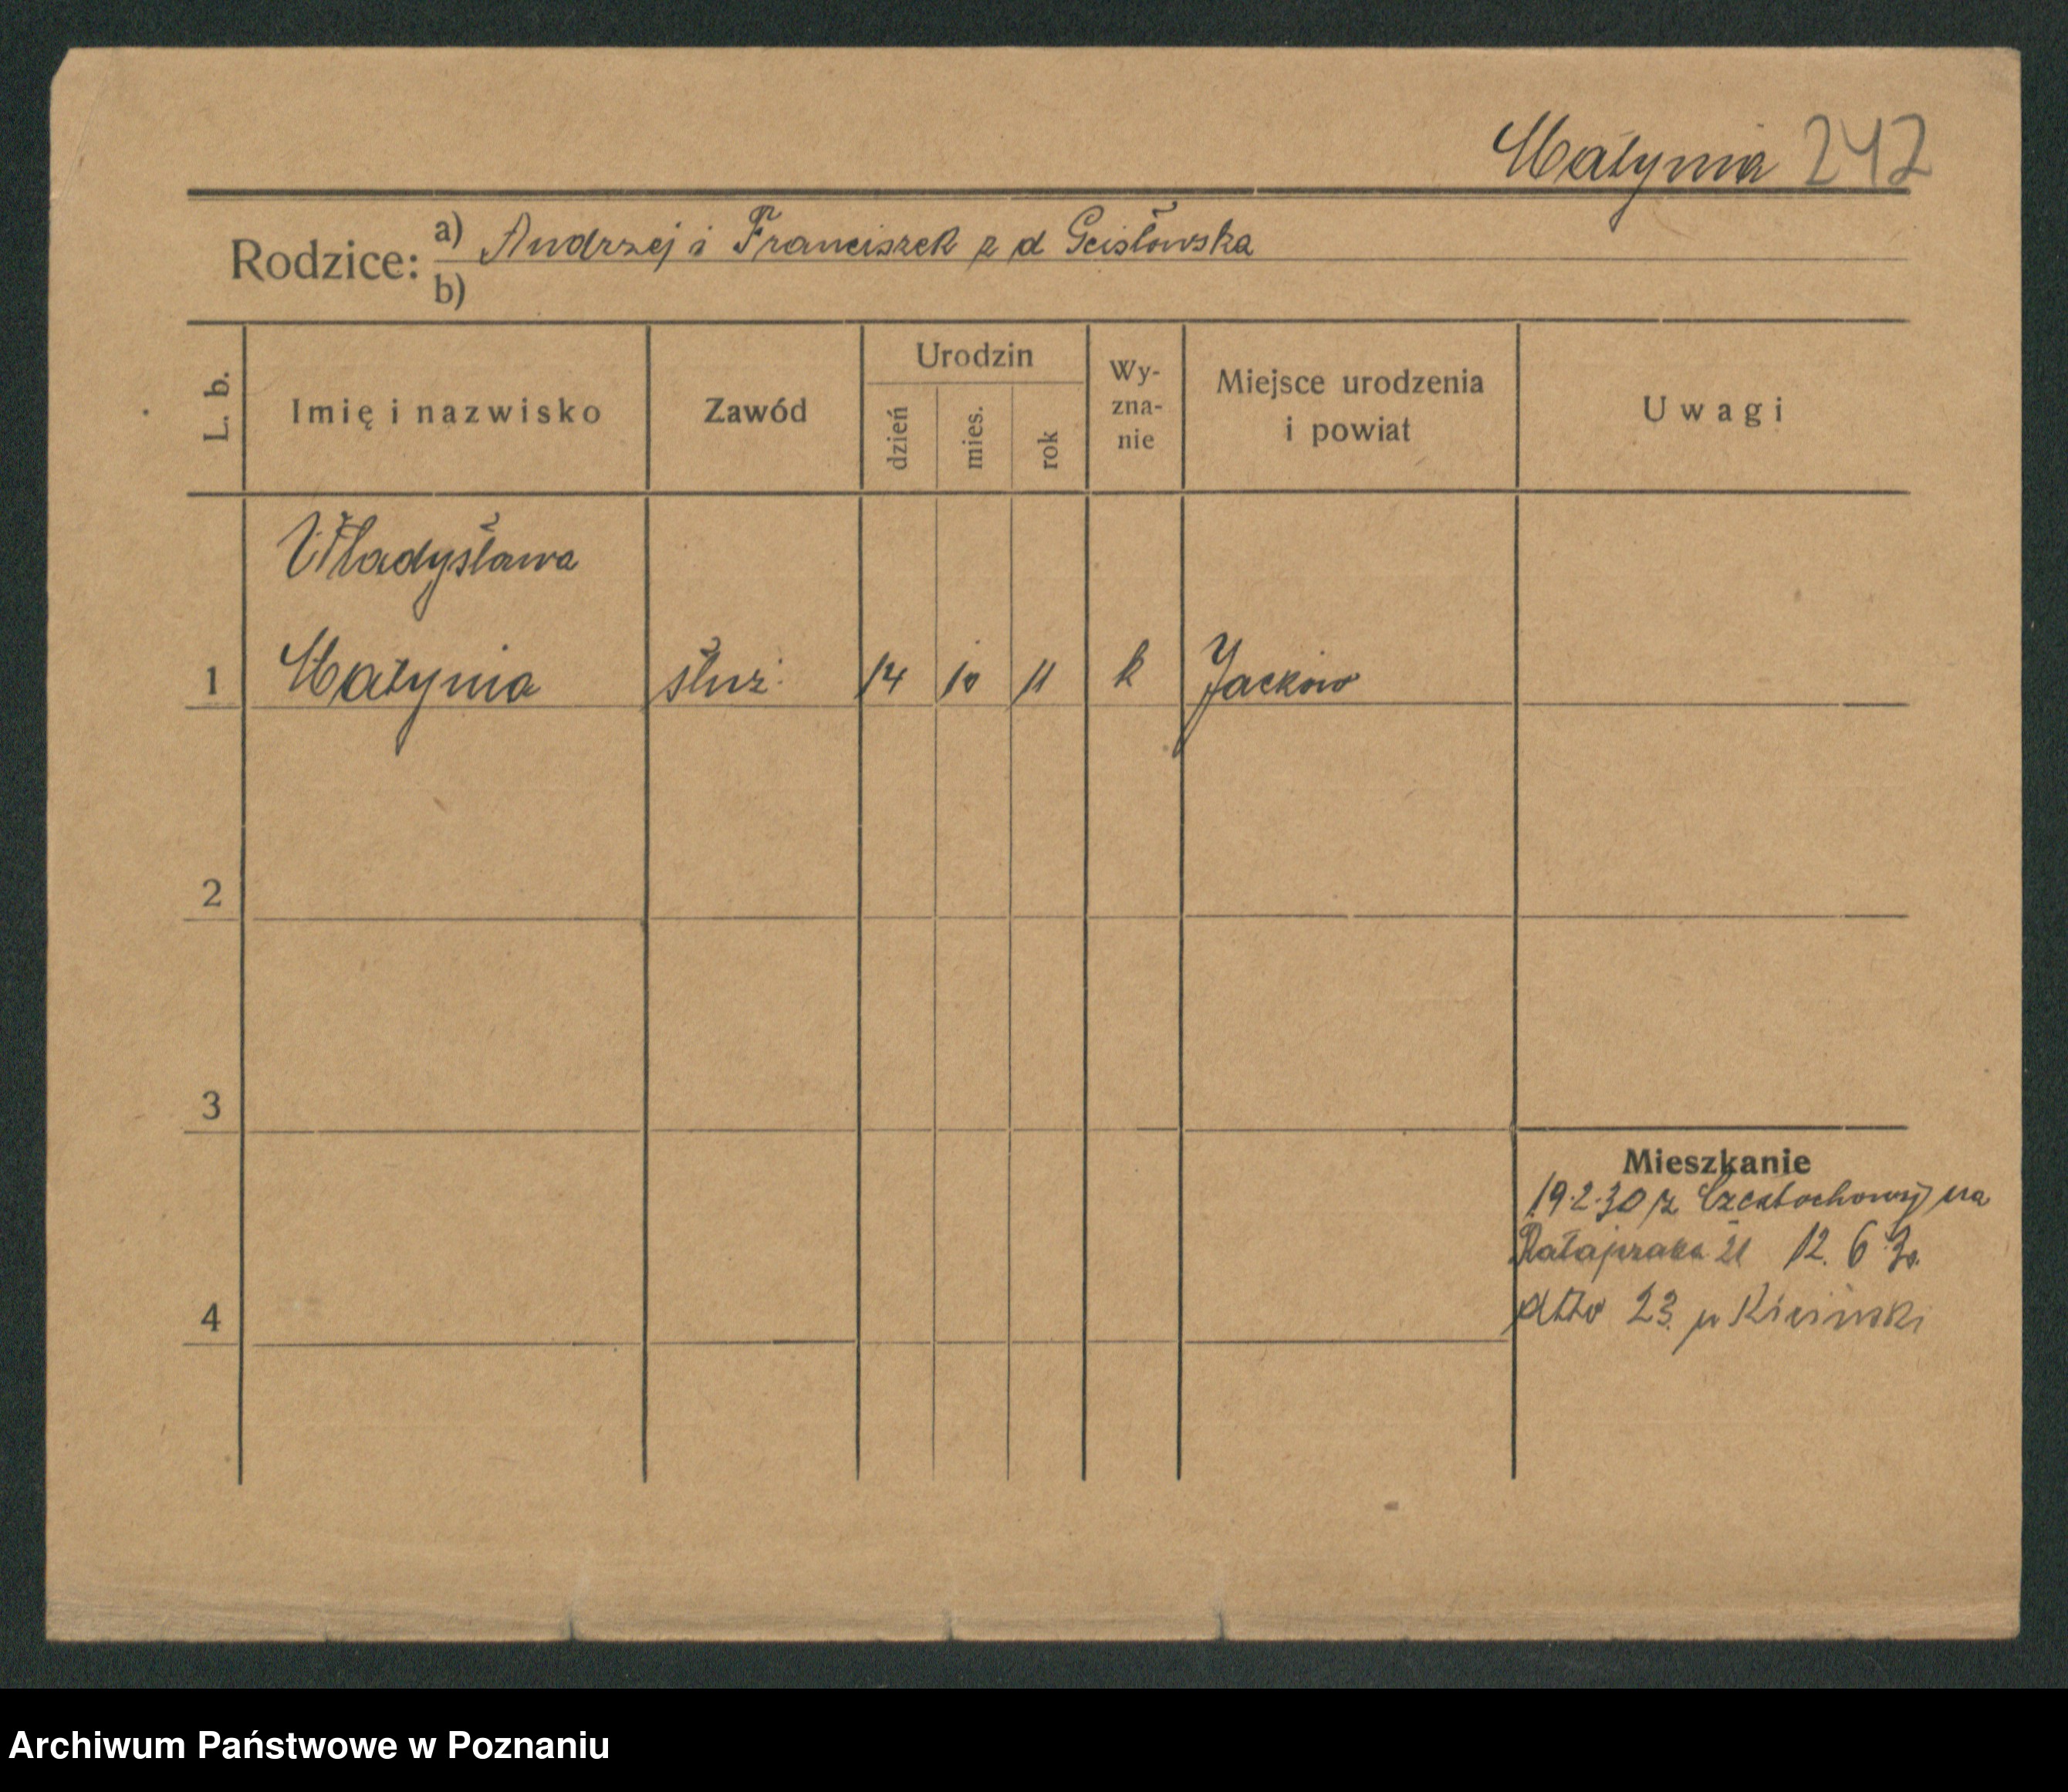 Matynia 242
Rodzice: a) Andrzej i Franciszek z d Geisłowska
b)
L. b. Imię i nazwisko Zawód Urodzin dzień mies. rok Wy-zna-nie Miejsce urodzenia i powiat Uwagi
Władysława
1 Matynia służ. 14 10 11 k Jacków
2
3
Mieszkanie
19.2.30 z Częstochowy na
Ratajczaka 21 12. 6 30.
4 dtto 23. u Kiciński
Archiwum Państwowe w Poznaniu